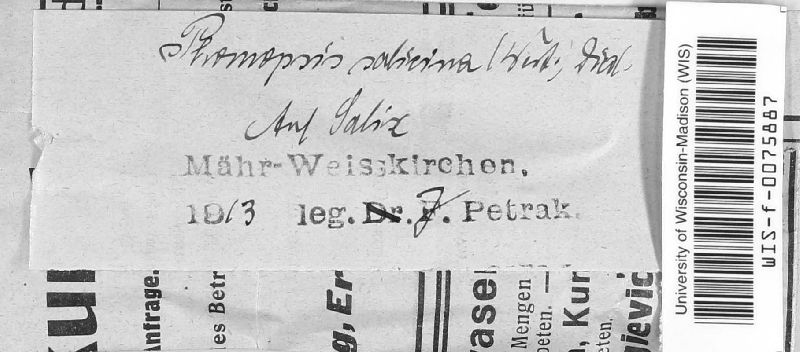 Phomopsis salicina (West.) Died.
Auf Salix
Mähr-Weisskirchen.
1913 leg. Dr. F. Petrak.
University of Wisconsin-Madison (WIS)
WIS-f-0075887
kur
Anfrage.
es Betr
g, Er
Vasel
Mengen
beten.
, Kur
eten.
gjevic